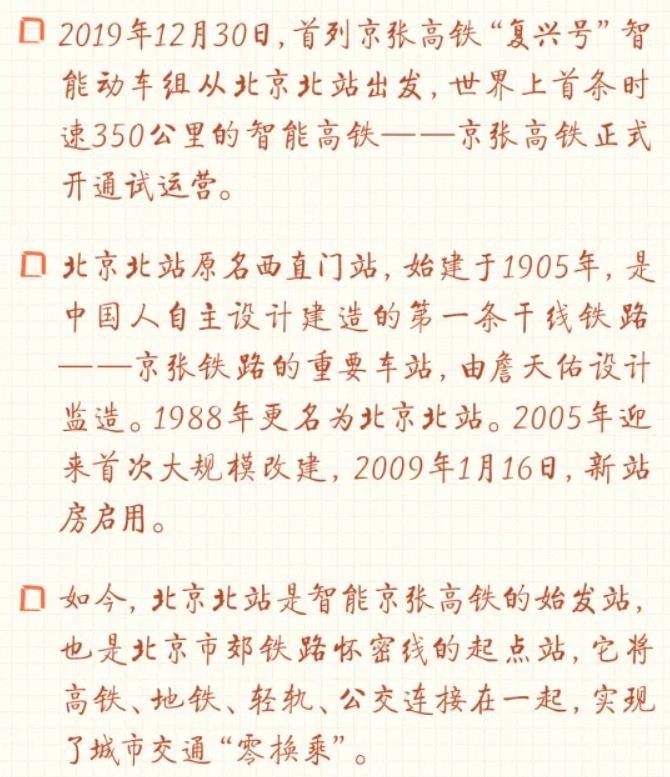 2019年12月30日，首列京张高铁“复兴号”智
能动车组从北京北站出发，世界上首条时
速350公里的智能高铁——京张高铁正式
开通试运营。
北京北站原名西直门站，始建于1905年，是
中国人自主设计建造的第一条干线铁路
——京张铁路的重要车站，由詹天佑设计
监造。1988年更名为北京北站。2005年迎
来首次大规模改建，2009年1月16日，新站
房启用。
如今，北京北站是智能京张高铁的始发站，
也是北京市郊铁路怀密线的起点站，它将
高铁、地铁、轻轨、公交连接在一起，实现
了城市交通“零换乘”。